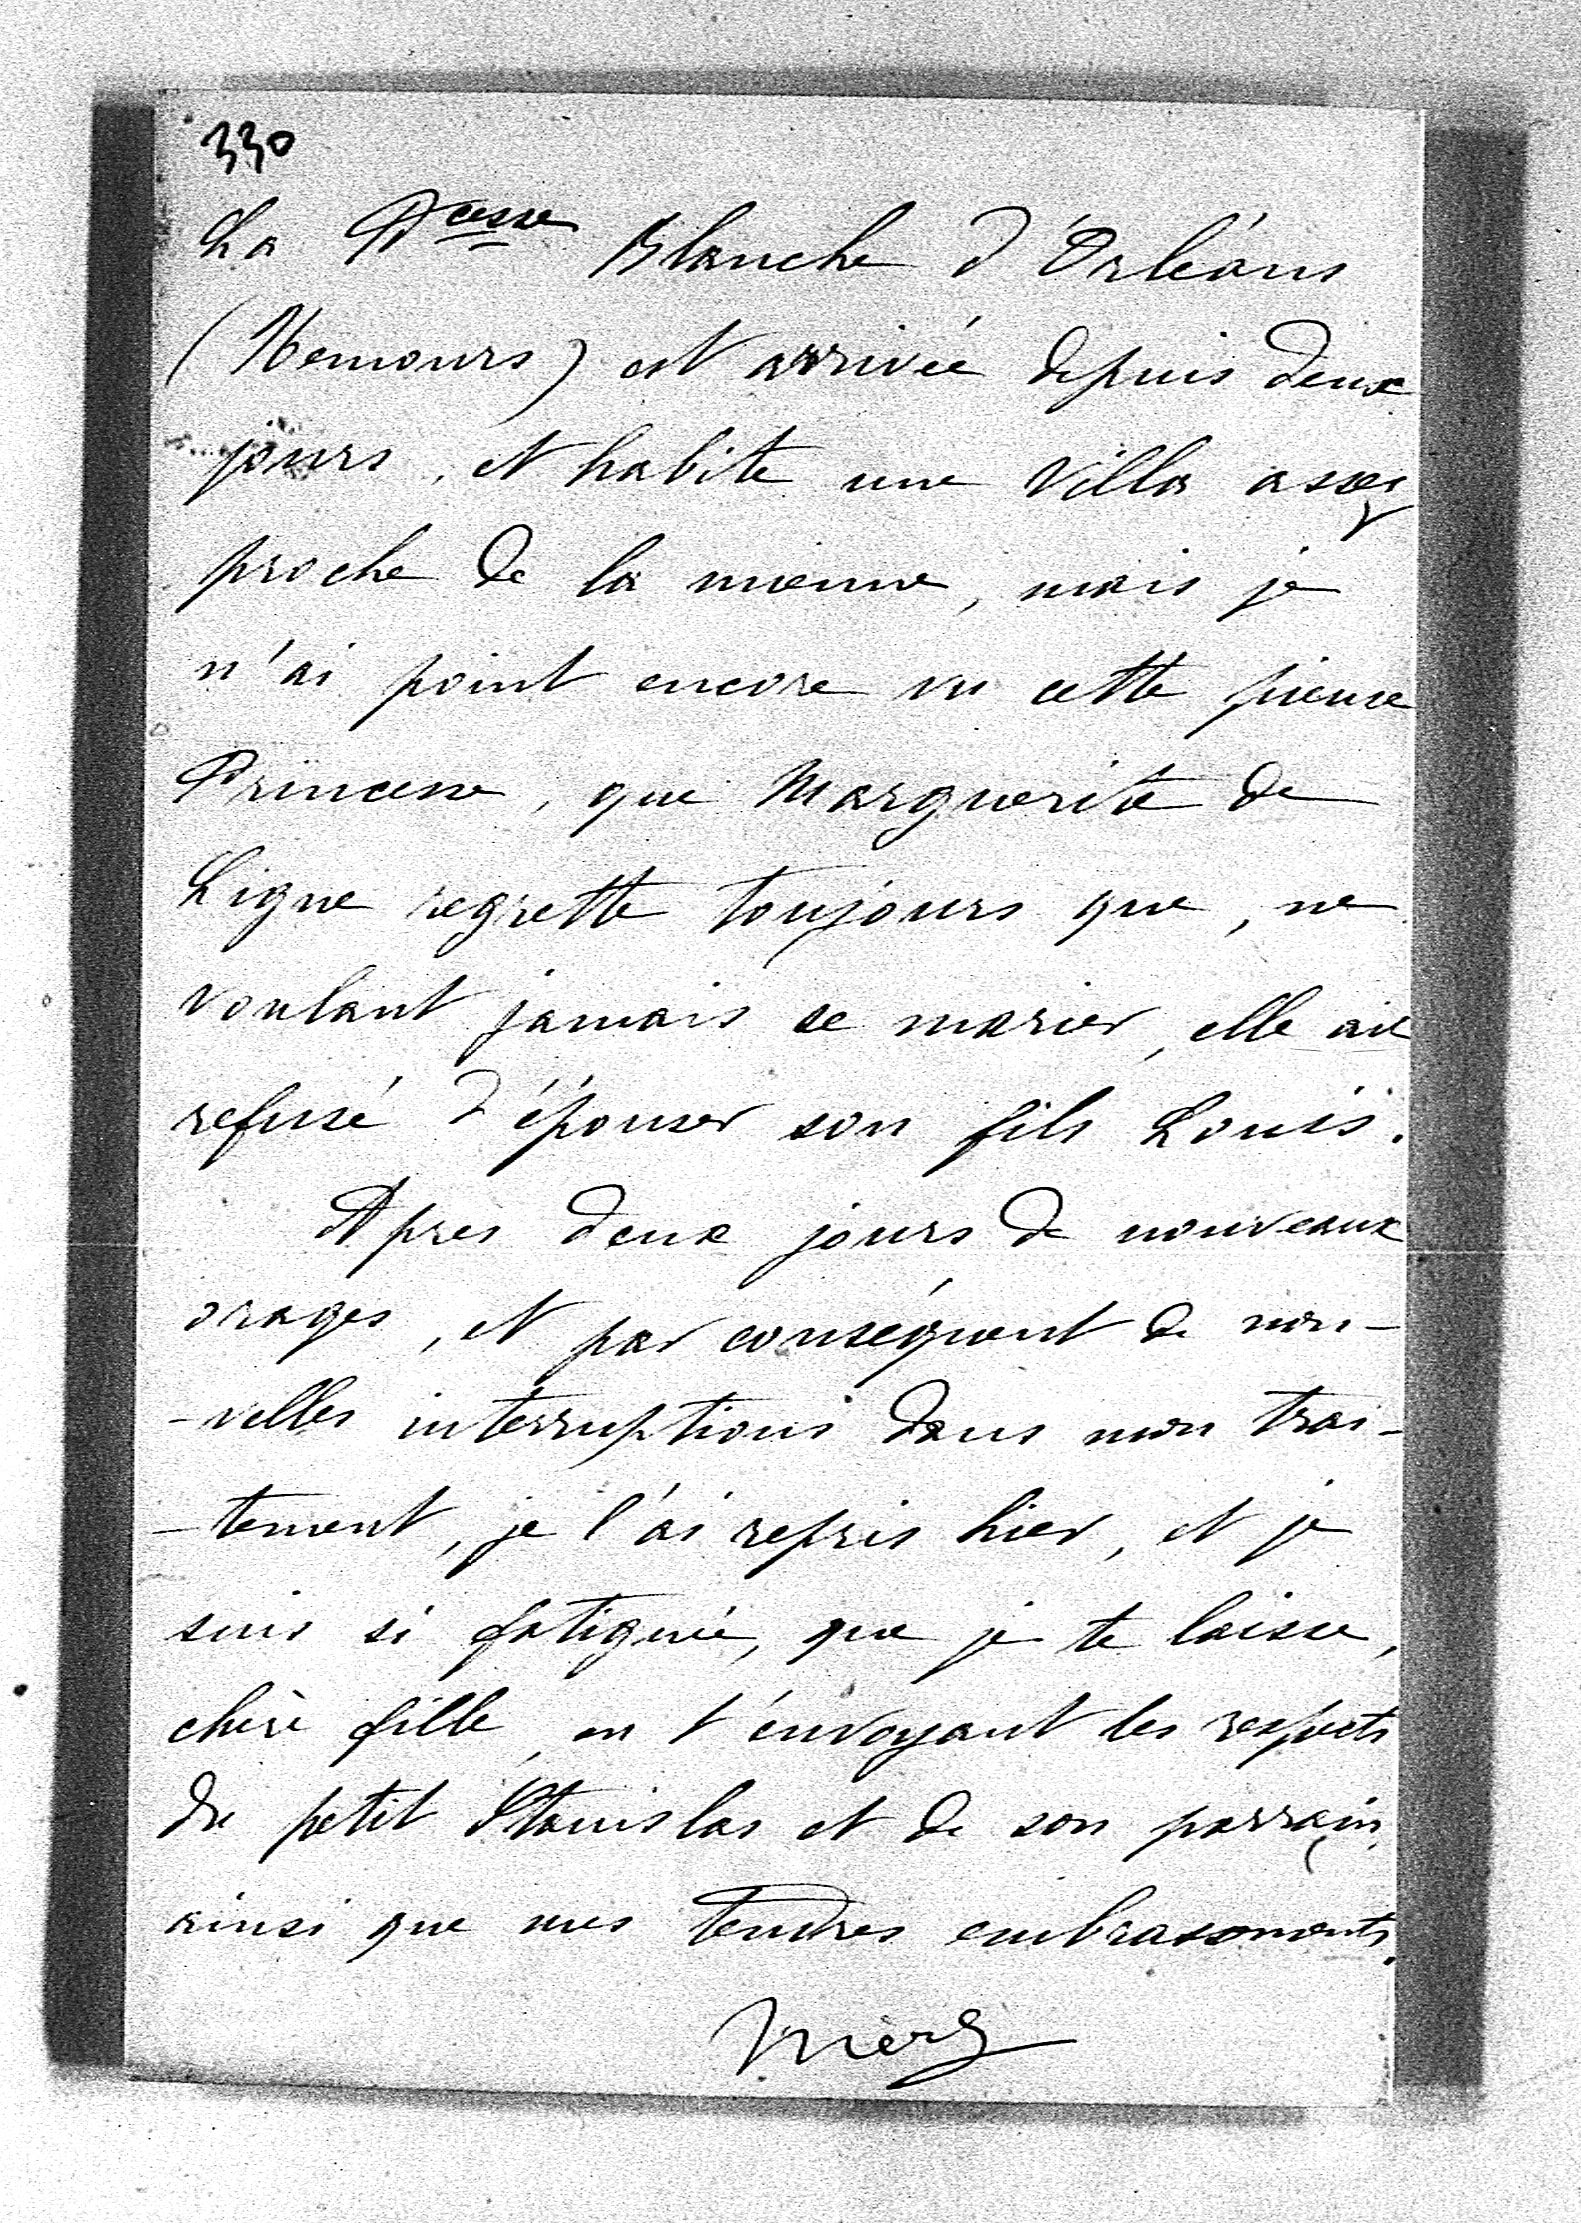 330
La Pcesse Blanche d'Orléans
(Nemours) est arrivée depuis deux
jours, et habite une villa assez
proche de la mienne, mais je
n'ai point encore vu cette pieuse
Princesse, que Marguerite de
Ligne regrette toujours que, ne
voulant jamais se marier, elle ait
refusé d'épouser son fils Louis.
Après deux jours de nouveaux
orages, et par conséquent de nou-
-velles interruptions dans mon trai-
-tement, je l'ai repris hier, et je
suis si fatiguée, que je te laisse,
chère fille, en t'envoyant les respects
du petit Stanislas et de son parrain,
ainsi que mes tendres embrassements.
Mère